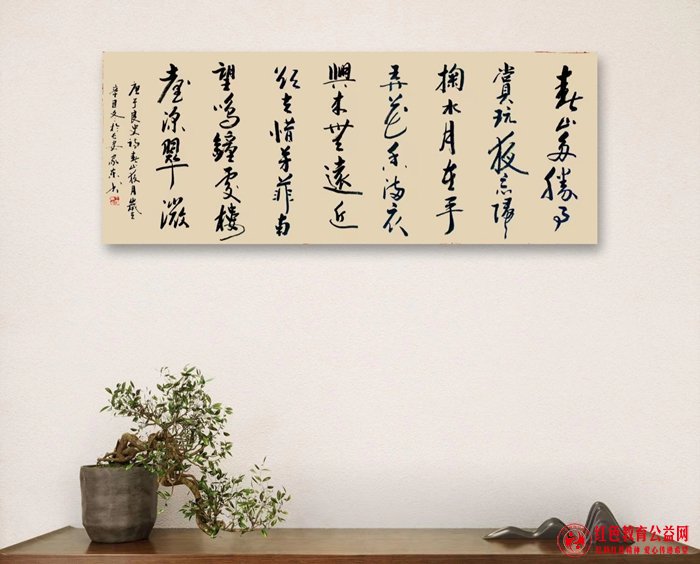 春山多勝事
賞玩夜忘歸
掬水月在手
弄花香滿衣
興來無遠近
欲去惜芳菲南
望鳴鐘處樓
臺深翠微
于良史詩春山夜月
红色教育公益网
爱心传递